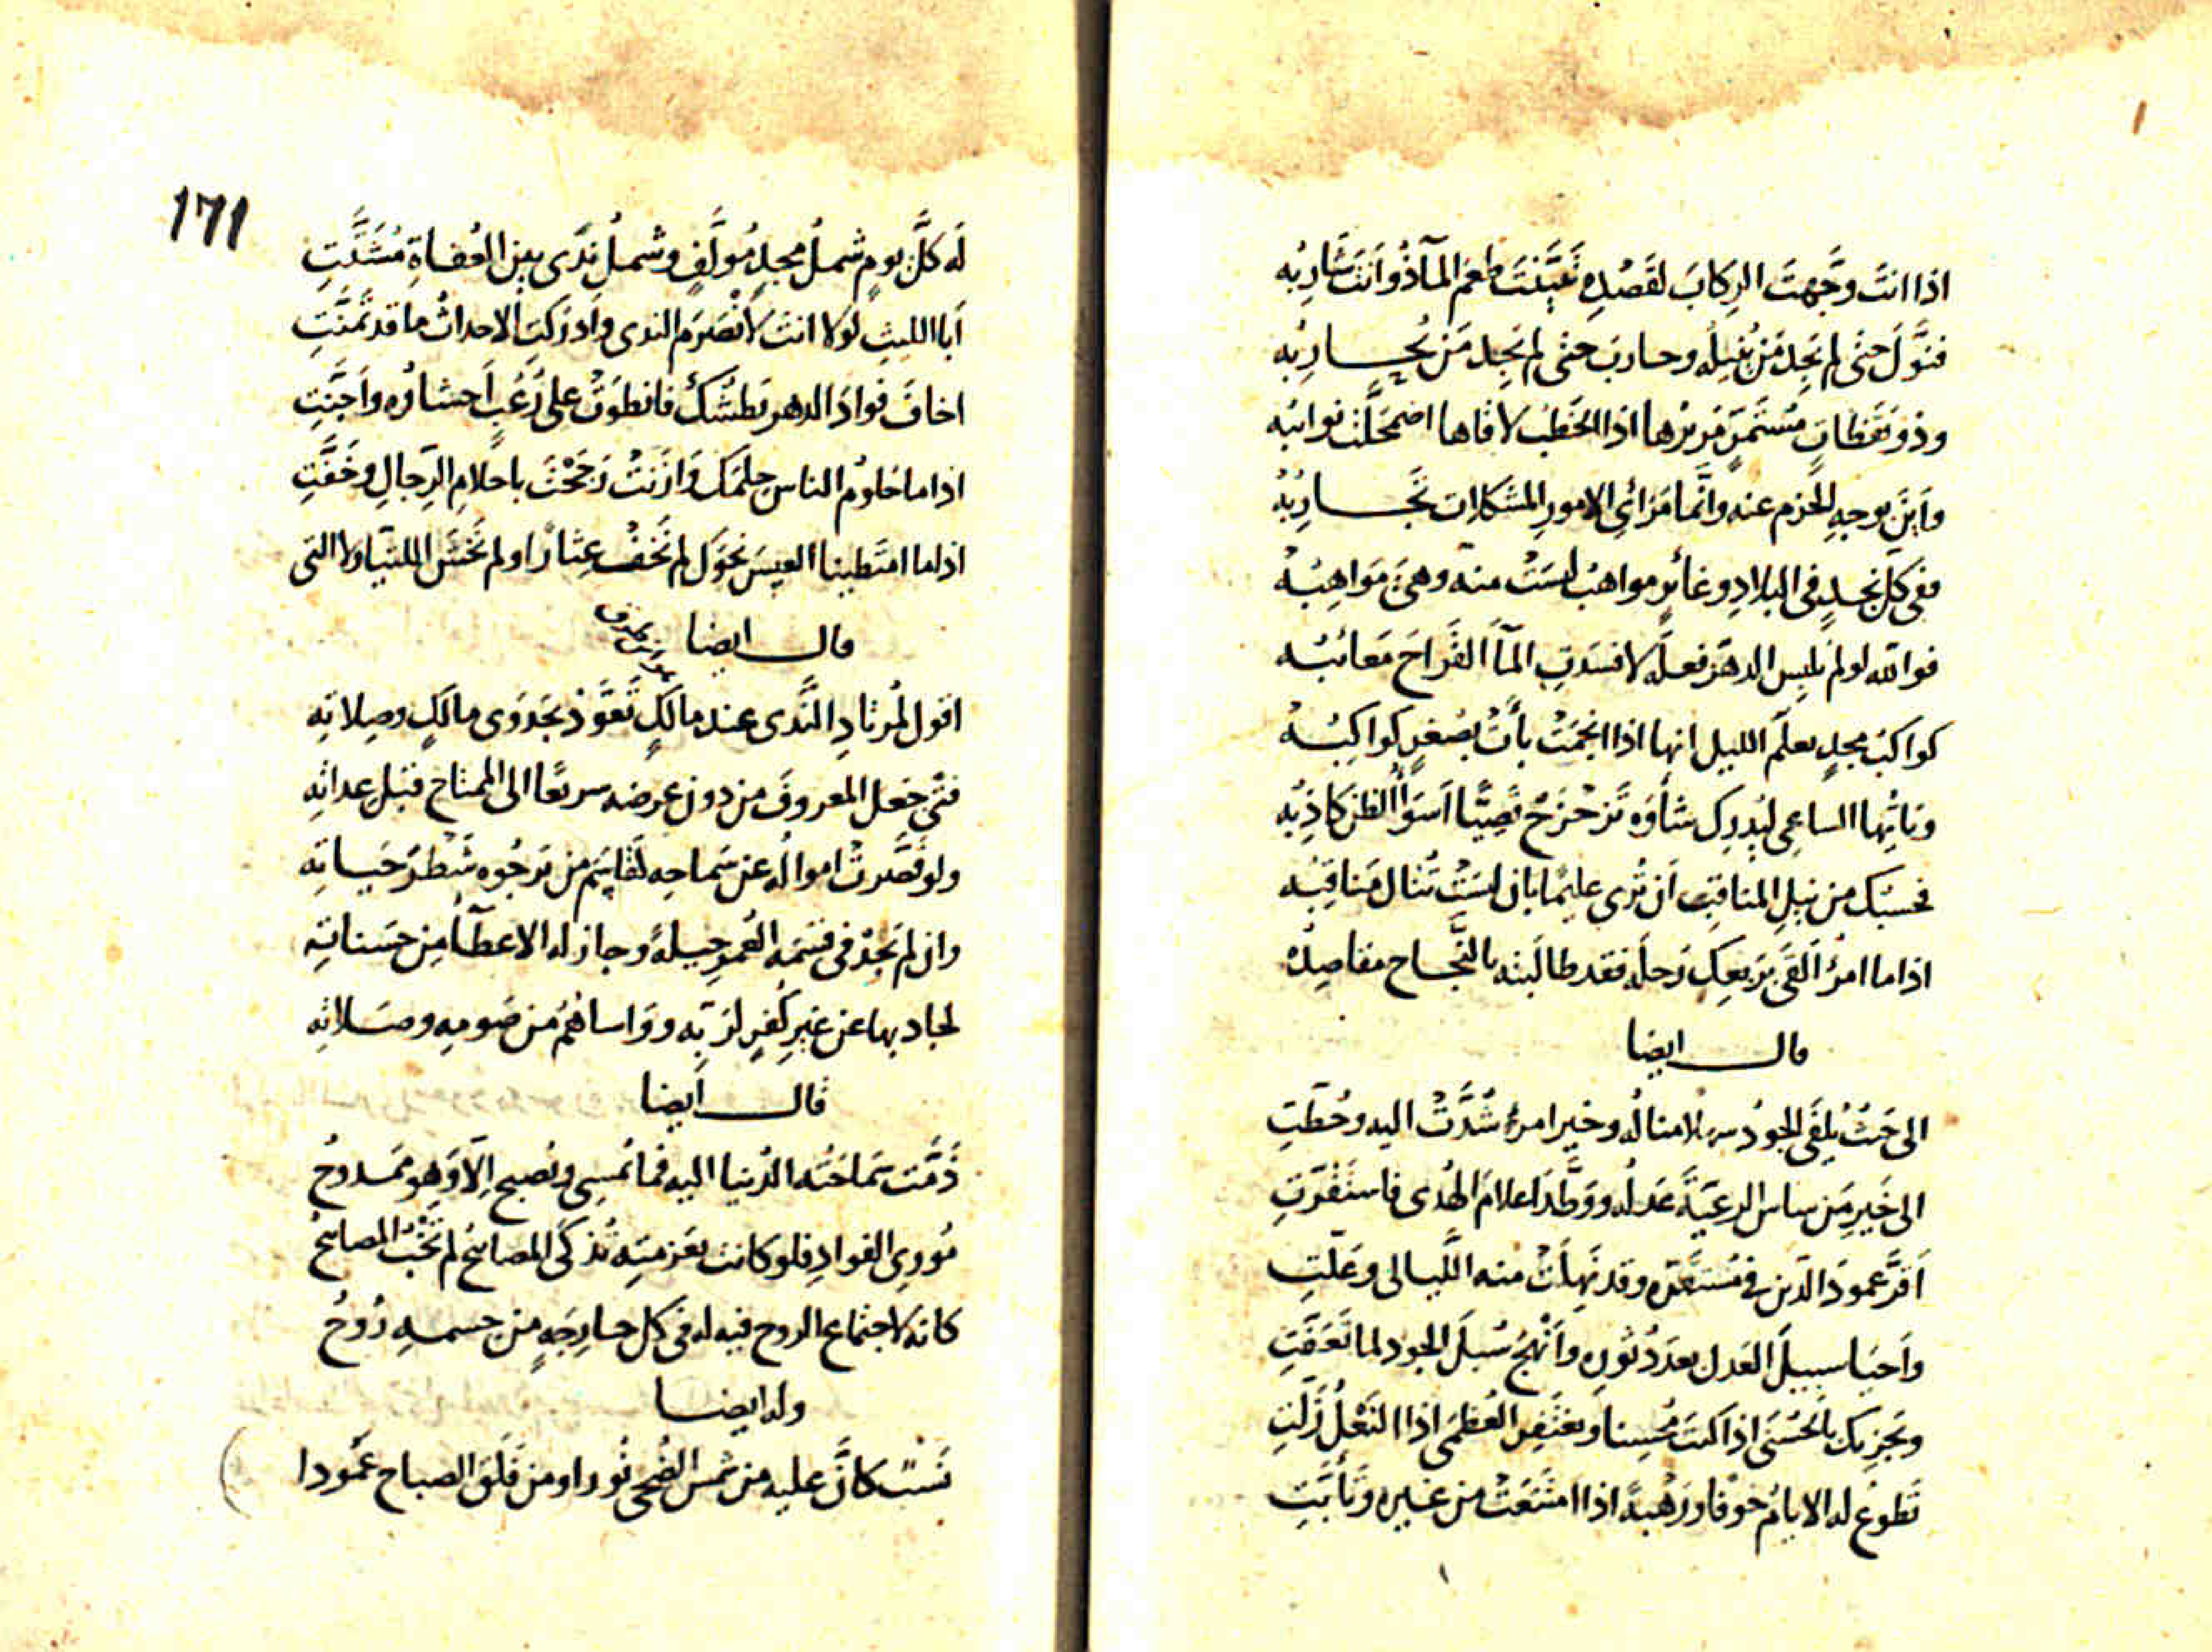 اذا انتَ وَجَّهتَ الرِكابَ لقَصْدِهِ تَبَيَّنتَ طعمَ المآذُ وَانتَ شارِبُه
فنَوَّلَ حتى لم تجِد مَن يُنيلُه وحاربَ حتى لم يَجِد مَن يُحـارِبُه
وذُو يَقَظاتٍ مُستَمِرّ مَريرُها اذا الخَطْبُ لاقاها اضمحَلَّت نوائبُه
وأين بوجهِ الحَزم عنه وانَّما مَرائي الامورِ المشكلات تَجـارِبُهْ
ففى كل نجدٍ فى البلادِ وغائرٍ مواهبُ لَيسَتْ منه وهى مَوَاهِبُـهْ
فوالله لو لم يُلبِس الدهرَ فعلَه لافسَدتِ المآَ القَراحَ مَعائبُـه
كواكبُ مجدٍ يعلَم الليل انها اذا انجمَتْ باءَتْ بصُغرٍ كواكِبُـهْ
ويا ايُّها الساعِى ليُدرِك شأوَه تَزَحزَحْ قَصِيًّا اَسوَأُ الظن كاذِبُه
فحسبُك من نيلِ المناقِب اَن تُرى عليمًا بان ليسَتْ تُنال مَناقِبُـه
اذا ما امرؤ اَلقَى بِرَبعِك رَحلَه فقد طالَبَته بالنَّجـاح مقاصِدُه
قال ايضا
الى حَيثُ يُلقَى الجُودُ سهلا منالُه وخيرِ امرءٍ شُدَّتْ اليه وحُطَّتِ
الى خَيرِ مَن ساس الرعيَّةَ عَدلُه ووَطَّدَ اعلامَ الهُدى فاستَقرّتِ
اَقرَّ عمودَ الدّين فى مُستَقَرّه وقد نَهِلَتْ منه اللَّيـالى وعَلّتِ
واَحيَا سبيلَ العَدل بعد دُثُورِه واَنْهَجَ سُبلَ الجود لما تَعَفَّتِ
ويَجزِيك بالحُسنَى اذا كنتَ مُحسِنا ويغتَفِر العُظمَى اذا النَعْلُ زَلّتِ
تَطوعُ له الايامُ خوفا ورَهْبةً اذا امتَنَعَتْ من غيرِه وتأَبَّتِ
١٦١
لَه كلَّ يومٍ شملُ مجدٍ مُؤلَّفٍ وشملُ نَدًى بين العُفـاةِ مُشَتَّتِ
اَبا الليثِ لولا انتَ لاَنْصَرَم الندى واَدرَكتِ الاحداثُ ما قد تَمَنَّتِ
اخافَ فوادَ الدهر بَطشُك فانطَوَتْ على رُعُبٍ اَحشاؤه واَجَنّتِ
اذا ما حُلومُ الناس حِلمَك وَازَنَتْ رَجَحْتَ باحلامِ الرِّجالِ وخَفَّتِ
اذا ما امتَطينا العيسَ نحوَك لم نَخَفْ عِثارًا ولم نَخشَ اللتَيّا ولا التى
قال ايضا
اقول لمُرتادِ النَّدى عند مالكٍ تَعَوَّذ بجَدوَى مالكٍ وصِلاتِه
فتًى جعل المعروفَ من دون عرضه سريعًا الى الممتاح قبل عداتِه
ولو قَصَّرتْ اموالُه عن سَماحِه لقاسَم من يَرجُوه شَطرَ حَيـاتِه
وان لم يَجِدْ فى قسمَةِ العُمرِ حِيلةً وجاز له الاعطآُ من حَسَناتِه
لجاد بها عن غيرِ كُفرٍ لرَبِّه ووَاساهُمُ من صَومِه وصَـلاتِه
قال أيضا
ذَمَّت سَماحَتُه الدُنيا اليه فما تُمسِى وتُصبح اِلّا وَهو ممدوحُ
مُورِى الفوادِ فلو كانت بعَزمتِه تُذكَى المصابيحُ لم تَخْبُ المصابيحُ
كانه لاجتماع الروح فيه له فى كل جـارِحَةٍ من جسمـهِ رُوحُ
وله ايضـا
نَسَبٌ كأنَّ عليه من شمس الضُحى نُورا ومن فَلَقِ الصباح عَمُودا